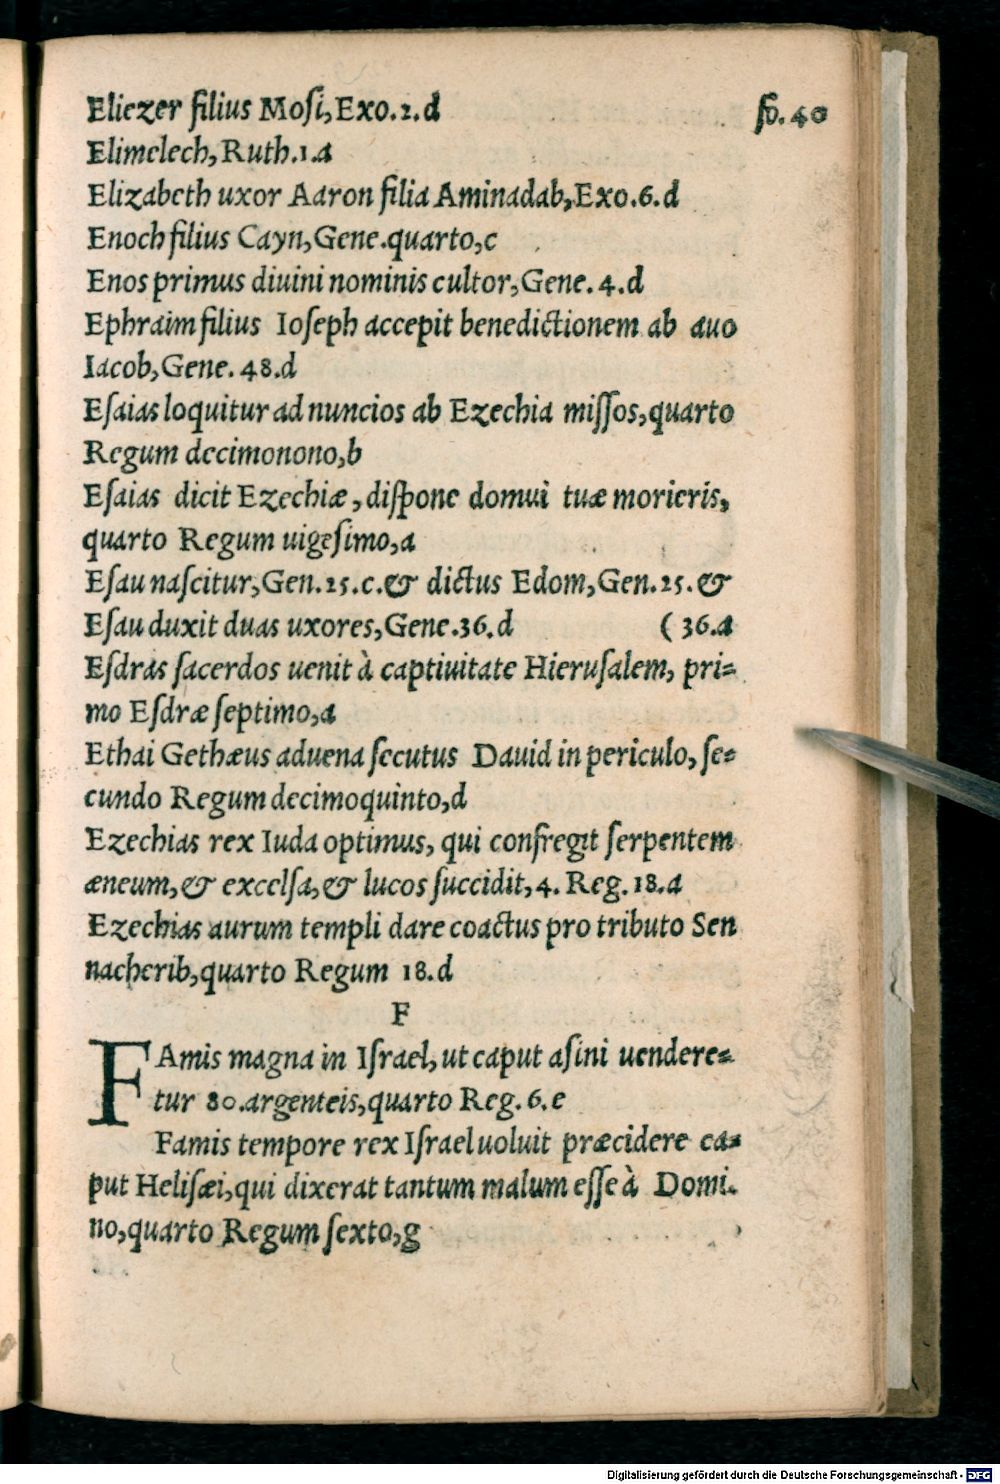 Eliezer filius Mosi, Exo.2.d fo.40
Elimelech, Ruth.1.a
Elizabeth uxor Aaron filia Aminadab, Exo.6.d
Enoch filius Cayn, Gene.quarto,c
Enos primus diuini nominis cultor, Gene. 4.d
Ephraim filius Ioseph accepit benedictionem ab auo
Iacob, Gene. 48.d
Esaias loquitur ad nuncios ab Ezechia missos, quarto
Regum decimonono,b
Esaias dicit Ezechiæ, dispone domui tuæ morieris,
quarto Regum uigesimo,a
Esau nascitur, Gen.25.c.& dictus Edom, Gen.25.&
Esau duxit duas uxores, Gene.36.d ( 36.a
Esdras sacerdos uenit à captiuitate Hierusalem, pri=
mo Esdræ septimo,a
Ethai Gethæus aduena secutus Dauid in periculo, se=
cundo Regum decimoquinto,d
Ezechias rex Iuda optimus, qui confregit serpentem
æneum, & excelsa, & lucos succidit, 4. Reg.18.a
Ezechias aurum templi dare coactus pro tributo Sen
nacherib, quarto Regum 18.d
F
FAmis magna in Israel, ut caput asini uendere=
tur 80.argenteis, quarto Reg. 6.e
Famis tempore rex Israel uoluit præcidere ca=
put Helisæi, qui dixerat tantum malum esse à Domi.
no, quarto Regum sexto,g
Digitalisierung gefördert durch die Deutsche Forschungsgemeinschaft - DFG